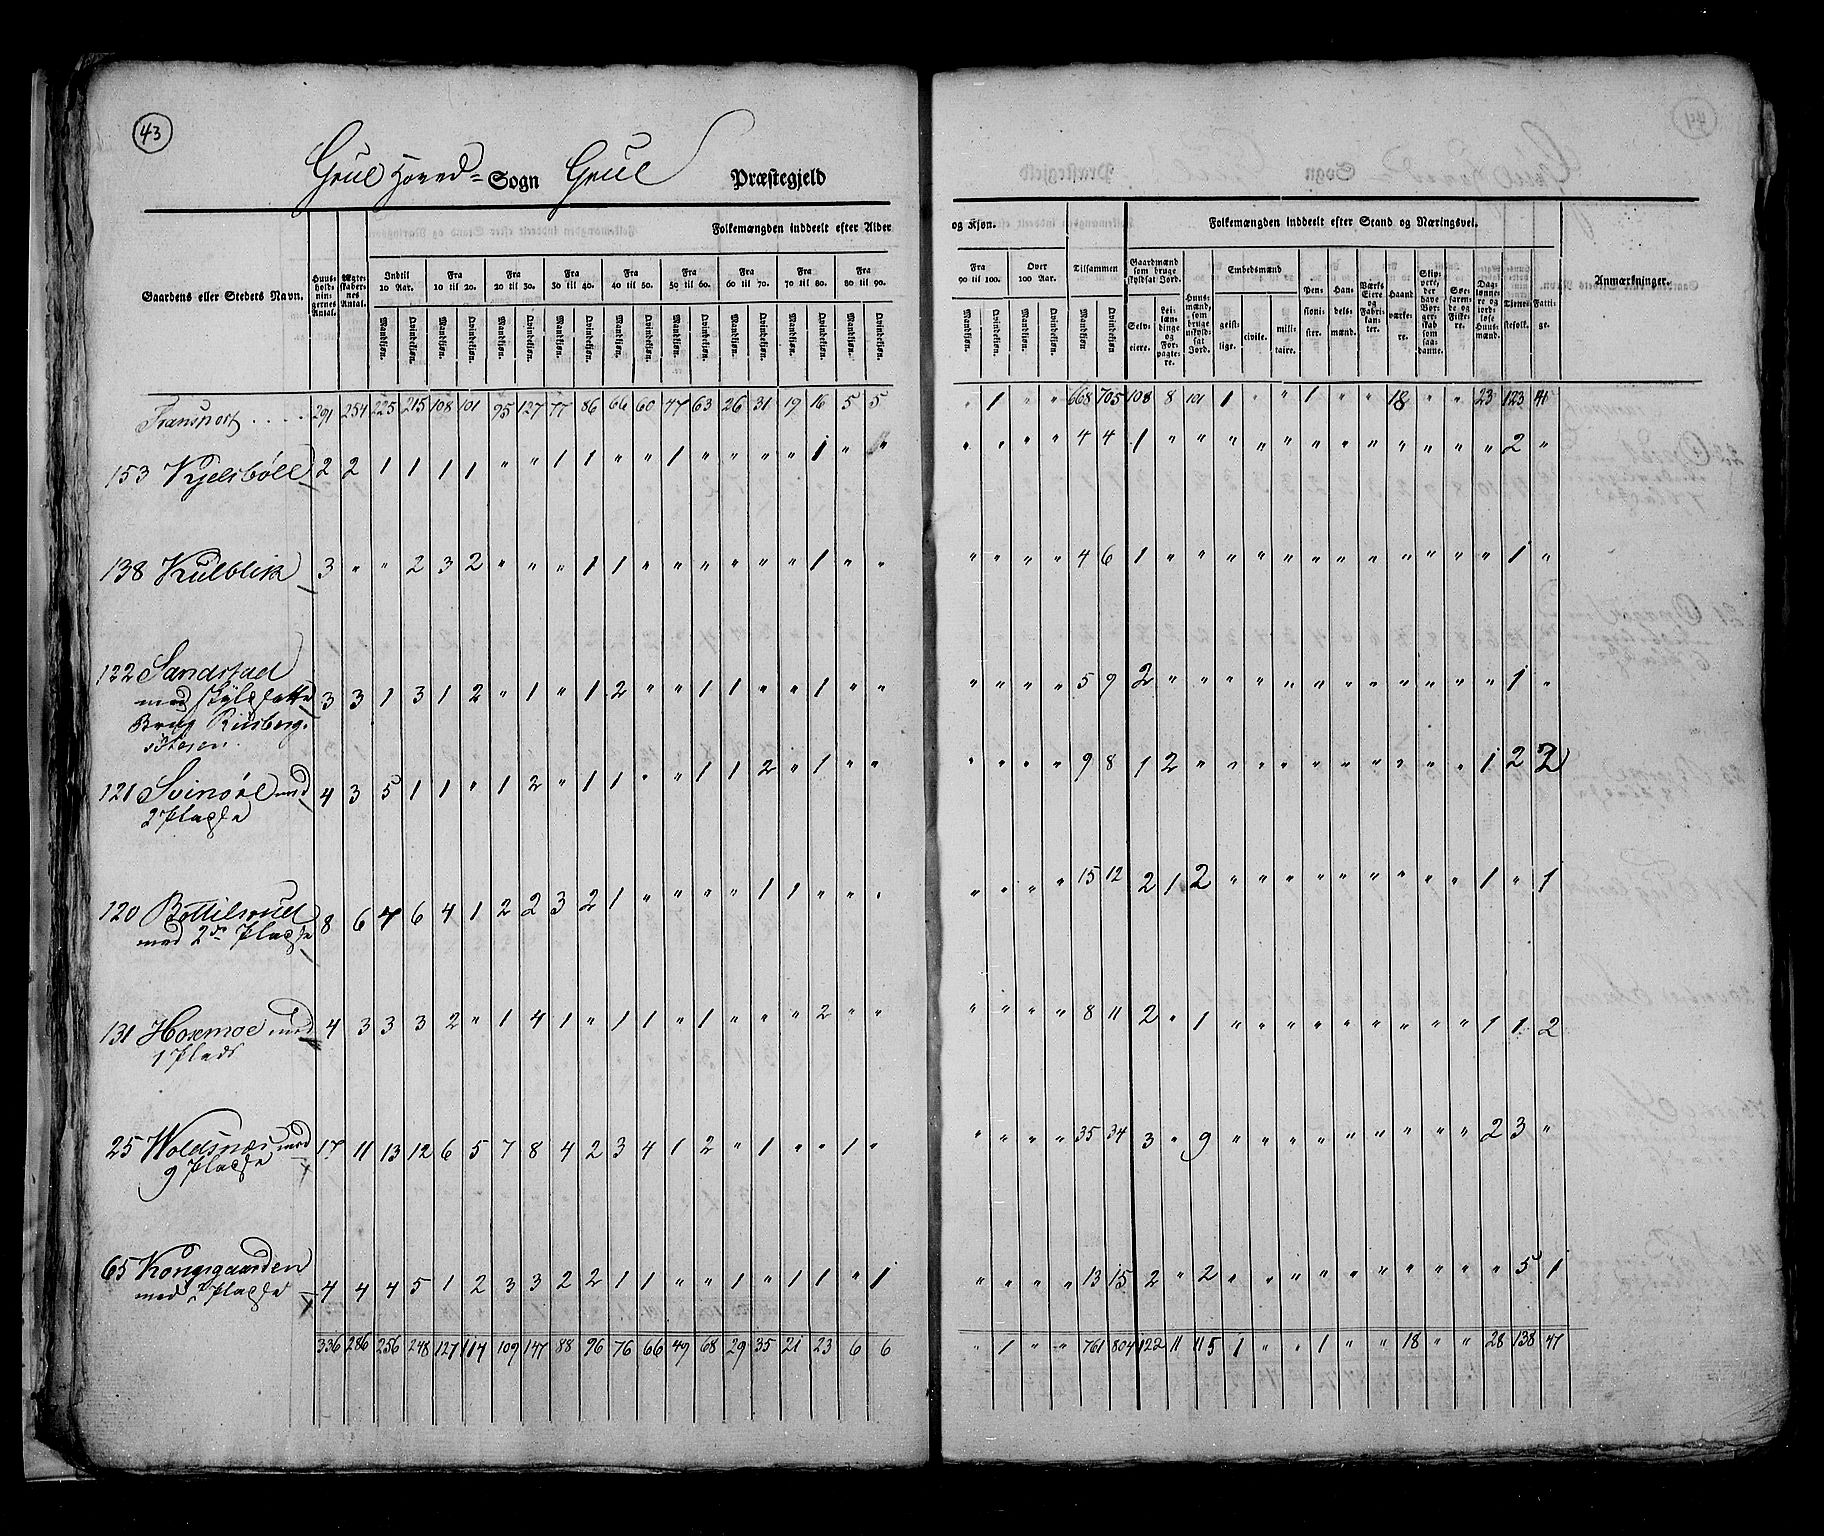 43
Grue Hoved= Sogn Grue Præstegjeld
Gaardens eller Stedets Navn.
Huusholdningernes Antal.
Ægteskabernes Antal.
Folkemængden inddeelt efter Alder og Kjøn.
Indtil 10 Aar.
Fra 10 til 20.
Fra 20 til 30.
Fra 30 til 40.
Fra 40 til 50.
Fra 50 til 60.
Fra 60 til 70.
Fra 70 til 80.
Fra 80 til 90.
Fra 90 til 100.
Over 100 Aar.
Tilsammen
Mandkjøn. Qvindekjøn.
Folkemængden inddeelt efter Stand og Næringsvei.
Gaardmænd som bruge skyldsat Jord.
Selveiere.
Leilændinge og Forpagtere.
Huusmænd, som bruge uskyldsat Jord.
Embedsmænd
geistlige. civile. militaire.
Pensionister.
Handelsmænd.
Værks Eiere og Fabrikanter.
Haandværkere.
Skippere, der have Borgerskab som saadanne.
Søefarende og Fiskere.
Daglønnere og jordløse Huusmænd.
Tjenestefolk.
Fattige.
Anmærkninger.
Transport . . . . 291 254 225 215 108 101 95 127 77 86 66 60 47 63 26 31 19 16 5 5 " 1 " " 668 705 108 8 101 1 " " 1 " " 18 " " 23 123 41
153 Kjelsbøll 2 2 1 1 1 1 " " 1 1 " " 1 " " " " 1 " " " " " " 4 4 1 " " " " " " " " " " " " 2 "
138 Kulblik 3 " " 2 3 2 " " " 1 1 " " " " " " 1 " " " " " " 4 6 1 " " " " " " " " " " " " 1 "
122 Sandstad
med skyldsatte 3 3 1 3 1 2 " 1 " 1 2 " " 1 1 " " 1 " " " " " " 5 9 2 " " " " " " " " " " " " 1 "
Brug Riisberg
121 Svinøll med 4 3 5 1 1 " 1 2 " 1 1 " " 1 1 2 " 1 " " " " " " 9 8 1 2 " " " " " " " " " " 1 2 2
2 Pladse
120 Bottilsrud
med 2de Pladse 8 6 4 6 4 1 2 2 3 2 1 " " " " 1 1 " " " " " " " 15 12 2 1 2 " " " " " " " " " 1 " 1
131 Hoxmoe med 4 3 3 3 2 " 1 4 1 " 1 1 " 1 " " " 2 " " " " " " 8 11 2 " 1 " " " " " " " " " 1 1 2
1 Plads
25 Woldsnæs med 17 11 13 12 6 5 7 8 4 2 3 4 1 2 " 1 " " 1 " " " " " 35 34 3 " 9 " " " " " " " " " 2 3 "
9 Pladse
65 Kongsgaarden
med 2 Pladse 4 4 4 5 1 2 3 3 2 2 1 1 " " 1 " 1 1 " 1 " " " " 13 15 2 " 2 " " " " " " " " " " 5 1
336 286 256 248 127 114 109 147 88 96 76 66 49 68 29 35 21 23 6 6 " 1 " " 761 804 122 11 115 1 " " 1 " " 18 " " 28 138 47